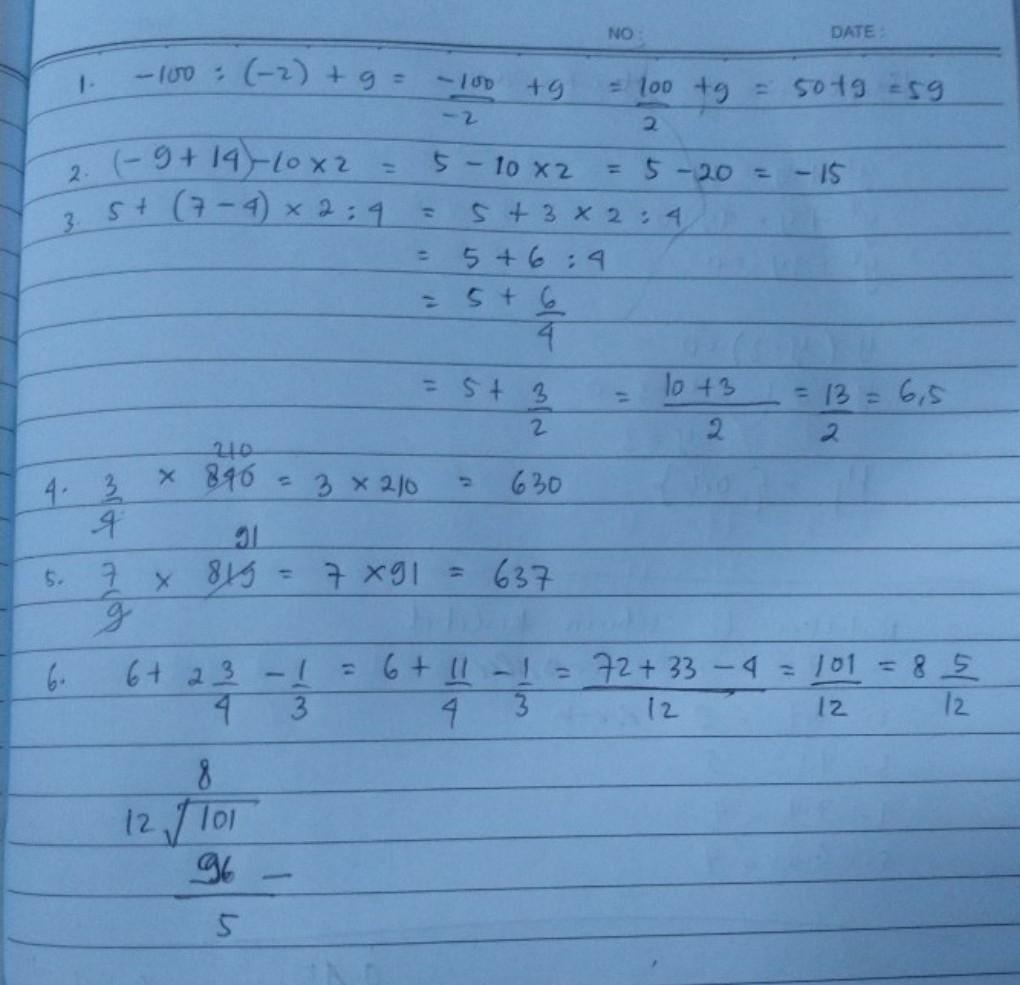 NO: DATE:
1. -100 : (-2) + 9 = -100/-2 + 9 = 100/2 + 9 = 50+9 = 59
2. (-9+14)-10×2 = 5 - 10×2 = 5 - 20 = -15
3. 5 + (7-4) × 2 : 4 = 5 + 3 × 2 : 4
= 5 + 6 : 4
= 5 + 6/4
= 5 + 3/2 = 10+3/2 = 13/2 = 6,5
210
4. 3/4 × 840 = 3 × 210 = 630
91
5. 7/9 × 819 = 7 × 91 = 637
6. 6 + 2 3/4 - 1/3 = 6 + 11/4 - 1/3 = 72+33-4/12 = 101/12 = 8 5/12
8
12 √101
96 -
5